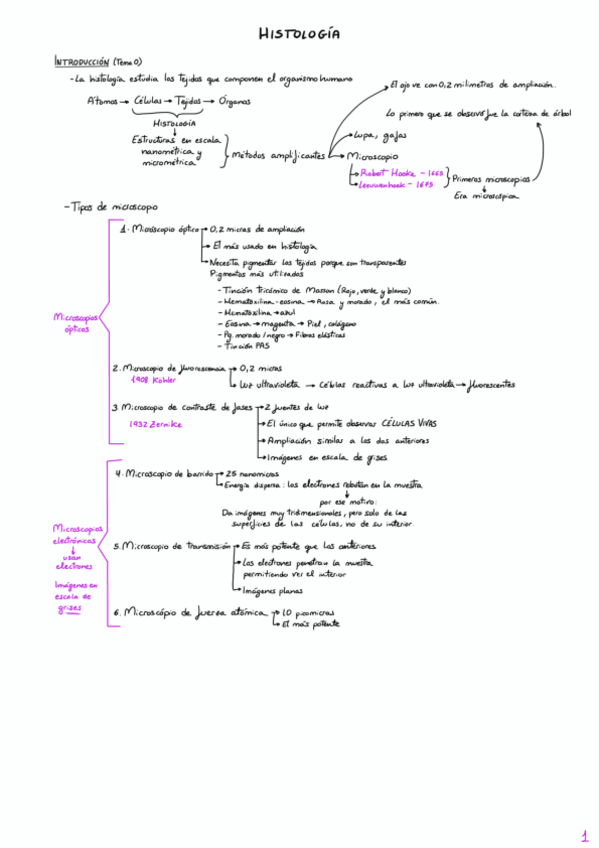 HISTOLOGÍA
INTRODUCCIÓN (Tema 0)
- La histología estudia los Tejidos que componen el organismo humano
Átomos → Células → Tejidos → Órganos
HISTOLOGÍA
Estructuras en escala
nanométrica y
micrométrica
Métodos amplificantes
El ojo ve con 0,2 milímetros de ampliación.
Lo primero que se observó fue la corteza de árbol
Lupa, gafas
Microscopio
Robert Hooke - 1665
Leeuwenhoek - 1675
Primeros microscopios
Era microscópica
- Tipos de microscopio
Microscopios
ópticos
1. Microscopio óptico → 0,2 micras de ampliación
El más usado en histología
Necesita pigmentar los tejidos porque son transparentes
Pigmentos más utilizados
- Tinción tricómico de Masson (Rojo, verde y blanco)
- Hematoxilina-eosina → Rosa y morado, el más común.
- Hematoxilina → azul
- Eosina → magenta → Piel, colágeno
- Pg. morado / negro → Fibras elásticas
- Tinción PAS
2. Microscopio de fluorescencia → 0,2 micras
1908 Köhler
Luz ultravioleta → Células reactivas a luz ultravioleta → fluorescentes
3. Microscopio de contraste de fases → 2 fuentes de luz
1932 Zernike
El único que permite observar CÉLULAS VIVAS
Ampliación similar a los dos anteriores
Imágenes en escala de grises
Microscopios
electrónicos
↓
usan
electrones
Imágenes en
escala de
grises
4. Microscopio de barrido → 25 nanomicras
Energía dispersa: los electrones rebotan en la muestra
por ese motivo:
Da imágenes muy tridimensionales, pero solo de las
superficies de las células, no de su interior.
5. Microscopio de transmisión → Es más potente que los anteriores
Los electrones penetran la muestra
permitiendo ver el interior
Imágenes planas
6. Microscópio de fuerza atómica → 10 picomicras
El más potente
1